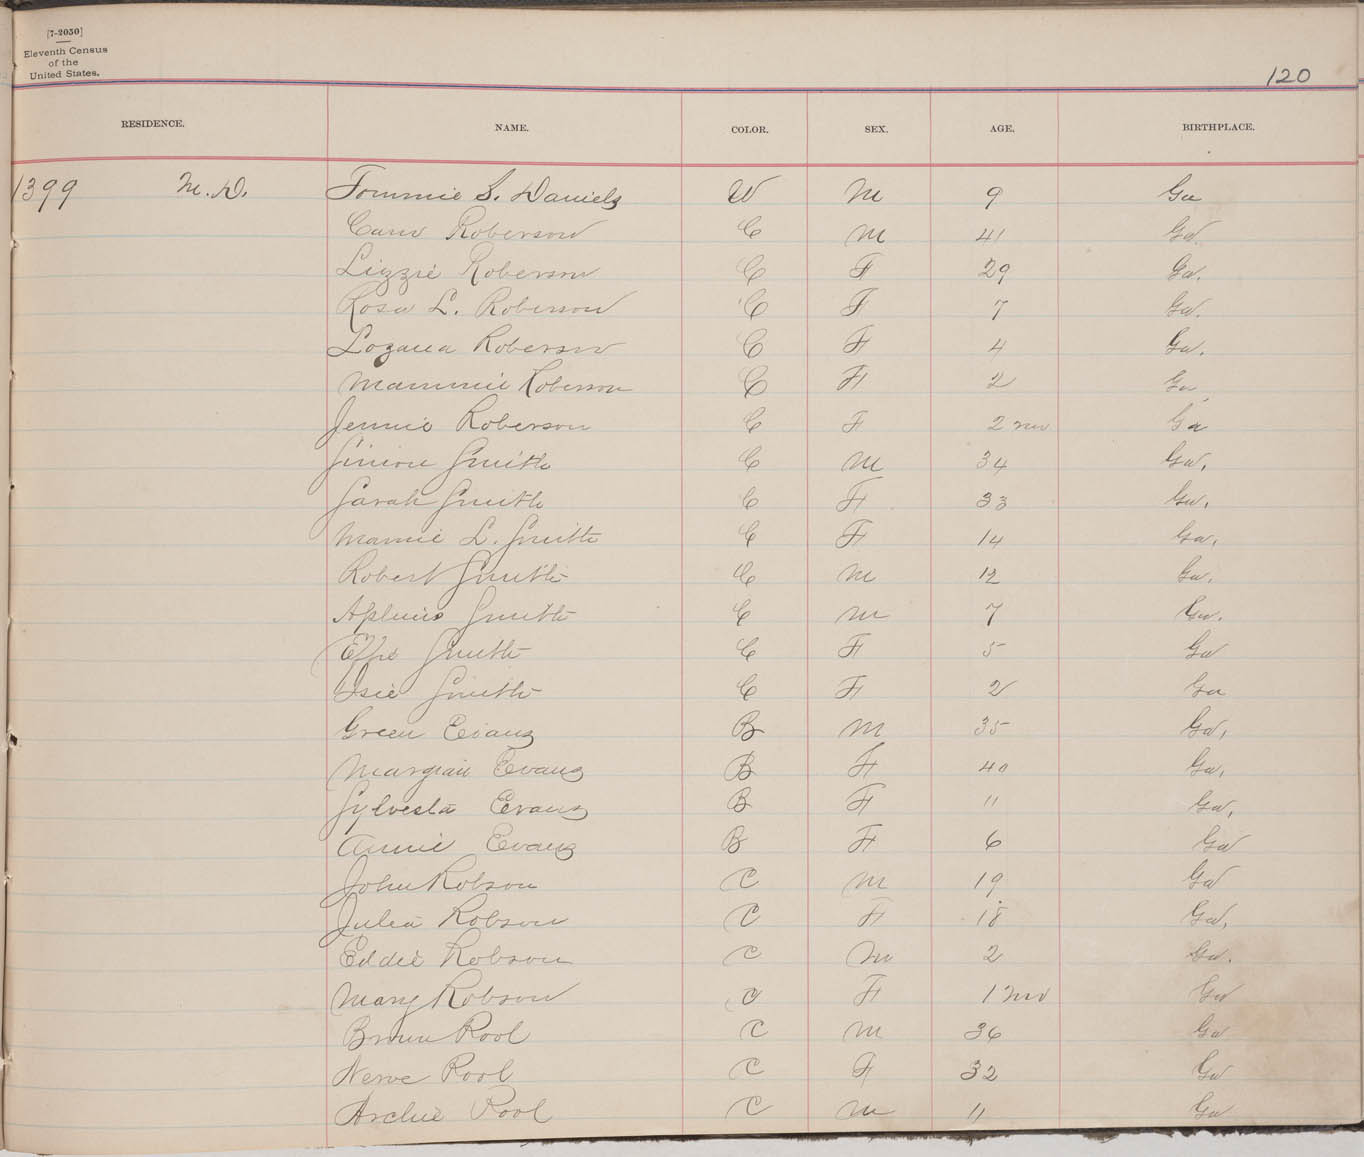 [7-2050]
Eleventh Census
of the
United States.
120
RESIDENCE. NAME. COLOR. SEX. AGE. BIRTHPLACE.
1399 M.D. Tommie S. Daniels W M 9 Ga
Roberson C M 41 Ga.
Lizzie Roberson C F 29 Ga.
Rosa L. Roberson C F 7 Ga.
Lozana Roberson C F 4 Ga.
Mammie Roberson C F 2 Ga
Jennie Roberson C F 2 mo Ga
Simon Smith C M 34 Ga.
Sarah Smith C F 33 Ga.
Mamie L. Smith C F 14 Ga.
Robert Smith C M 12 Ga.
Smith C M 7 Ga.
Effie Smith C F 5 Ga
Osie Smith C F 2 Ga
Green Evans B M 35 Ga.
Evans B F 40 Ga.
Sylvesta Evans B F 11 Ga.
Annie Evans B F 6 Ga
John Robson C M 19 Ga
Julea Robson C F 18 Ga.
Eddie Robson C M 2 Ga.
Mary Robson C F 1 mo Ga
Pool C M 36 Ga
Nerve Pool C F 32 Ga
Archie Pool C M 11 Ga